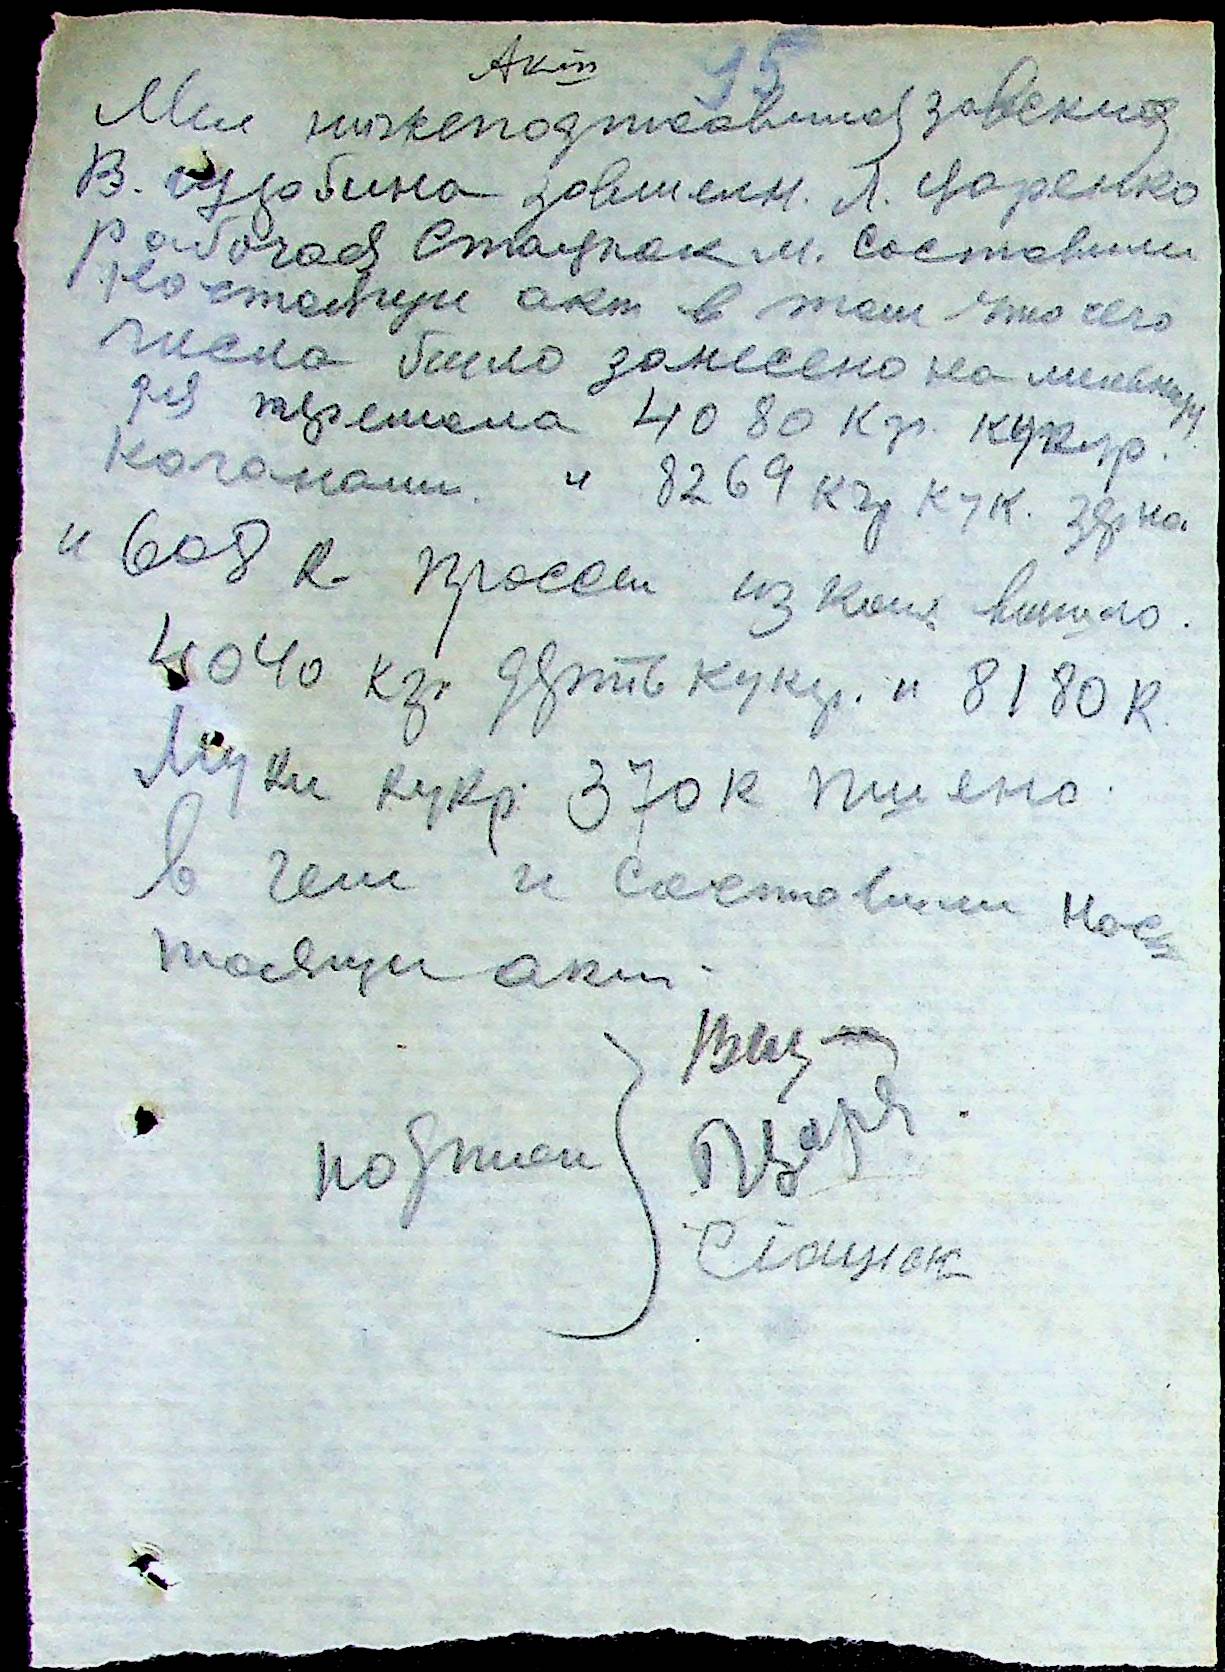 Акт 15
Мы нижеподписавшися завскладо
В. зузобина завмелн. Л. Царенко
рабочая Стацнак м. составили
ностоящи акт в том что чего
числа было занесено на мельницу
для премола 4080 кг. кукур.
кочанами. и 8269 кг кук. зерна
и 608 к. просом из коц вышло.
4040 кг. дерть кукур. и 8180 к.
Муки кукр. 370 к пшено.
в чем и составили нос
тоящи акт.
подписи
Царе
Стацнок